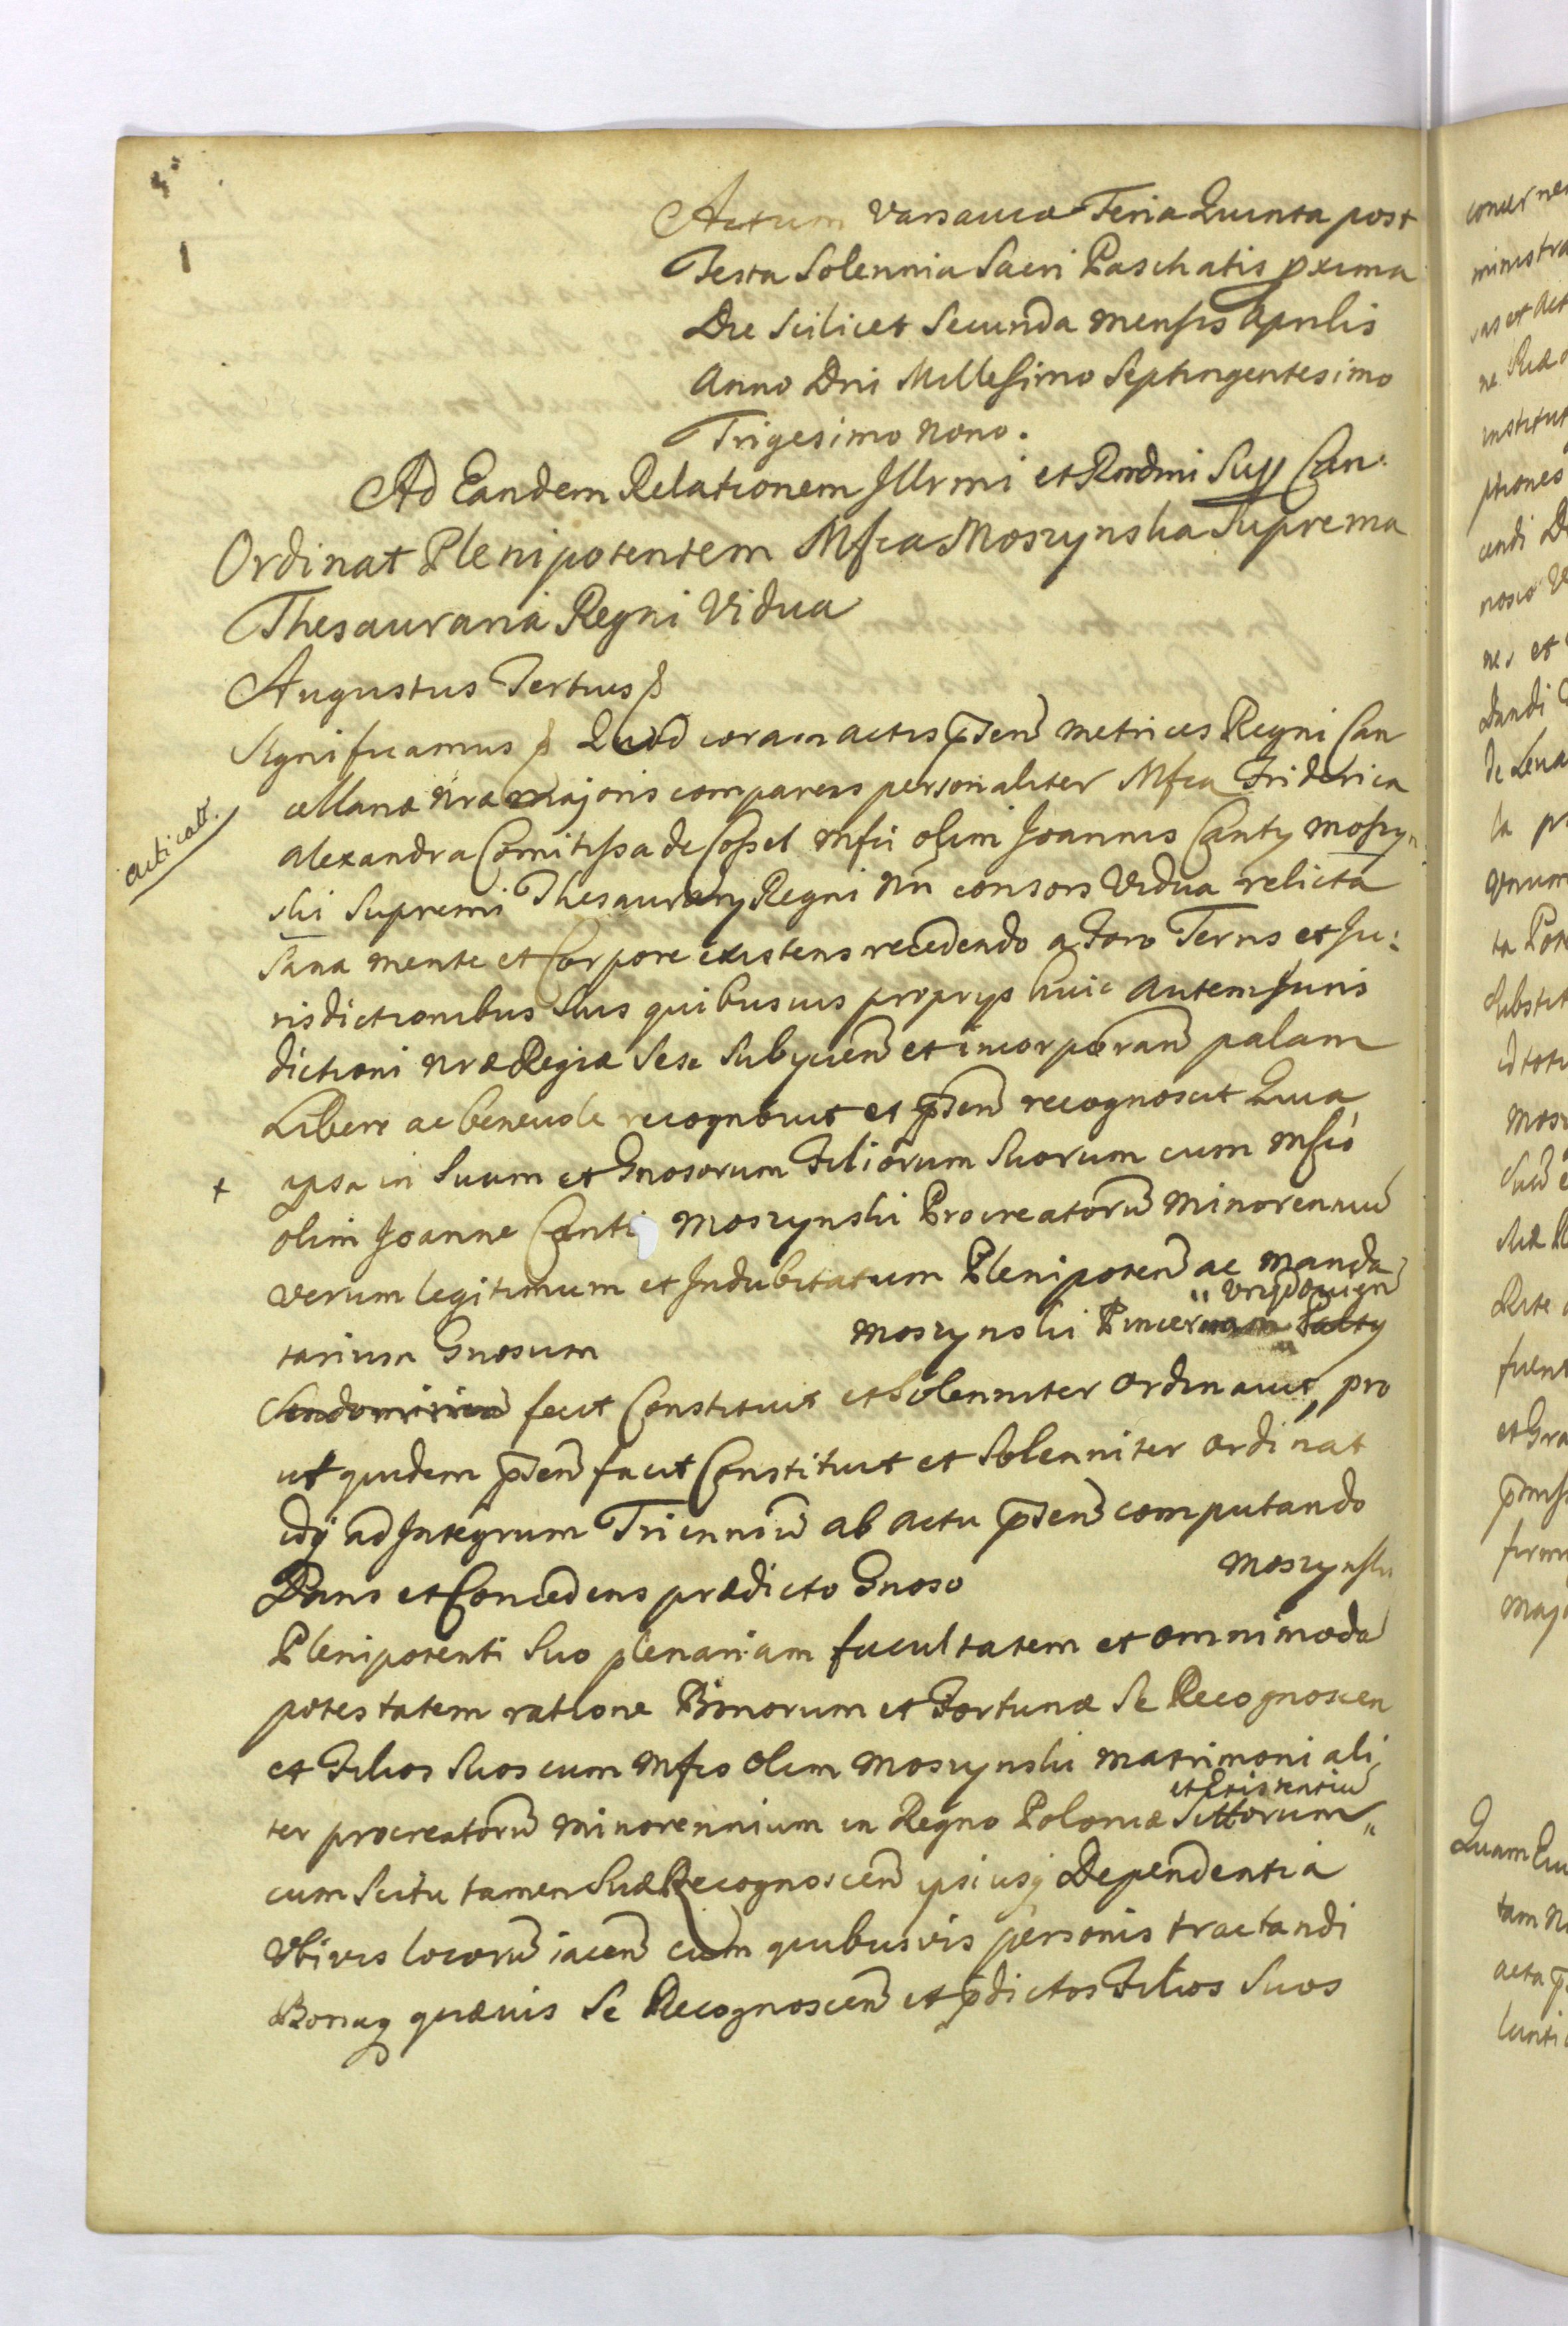 1
Actum Varsaviæ Feria Quinta post
Festa Solennia Sacri Paschatis pxima
Die Scilicet Secunda mensis Aprilis
Anno Dni Millesimo Septingentesimo
Trigesimo nono.
Ad Eandem Relationem Illrmi et Rndmi Sup Can:
Ordinat Plenipotentem Mfca Moszynska Suprema
Thesauraria Regni Vidua
Augustus Tertius
Significamus Quod coram actis pñtñ metrices Regni Can
cellariæ nræ Majoris comparens personaliter Mfca Friderica
acticatt.
Alexandra Comitissa de Cossel Mfci olim Joannis Canty Moszyn
ski Supremi Thesaurarij Regni Nri consors Vidua relicta
Sana mente et Corpore existens recedendo a Foro Terris et Ju:
risdictionibus Suis quibusvis proprijs huic autem Juris
dictioni nræ Regiæ Sese Subijcien et incorporan palam
Libere ac benevole recognovit et pñsen recognoscit Quia
+ ipsa in Suum et Gnosorum Filiorum Suorum cum Mfco
olim Joanne Canti Moszynski Procreatorū Minorenniū
verum legitimum et Indubitatum Plenipoten ac Manda
tarium Gnosum Moszynski Pincer
Sendomirien fecit Constituit et Solenniter ordinavit, pro
ut quidem pñsen facit Constituit et Solenniter ordinat
idq ad Integrum Trienniū ab actu pñsen computando
Dans et Concedens prædicto Gnoso Moszynski
Plenipotenti Suo plenariam facultatem et omnimodā
potestatem ratione Bonorum et Fortunæ Se Recognoscen
et Filios Suos cum Mfco olim Moszynski matrimoniali
et Existentiū
ter procreatorū minorennium in Regno Poloniæ Sittorum
cum Scitu tamen Suæ Recognoscen ipsiusq Dependentia
Ubivis locorū iacen cum quibusvis personis tractandi
Bonaq quævis Se Recognoscen et pdictos Filios Suos